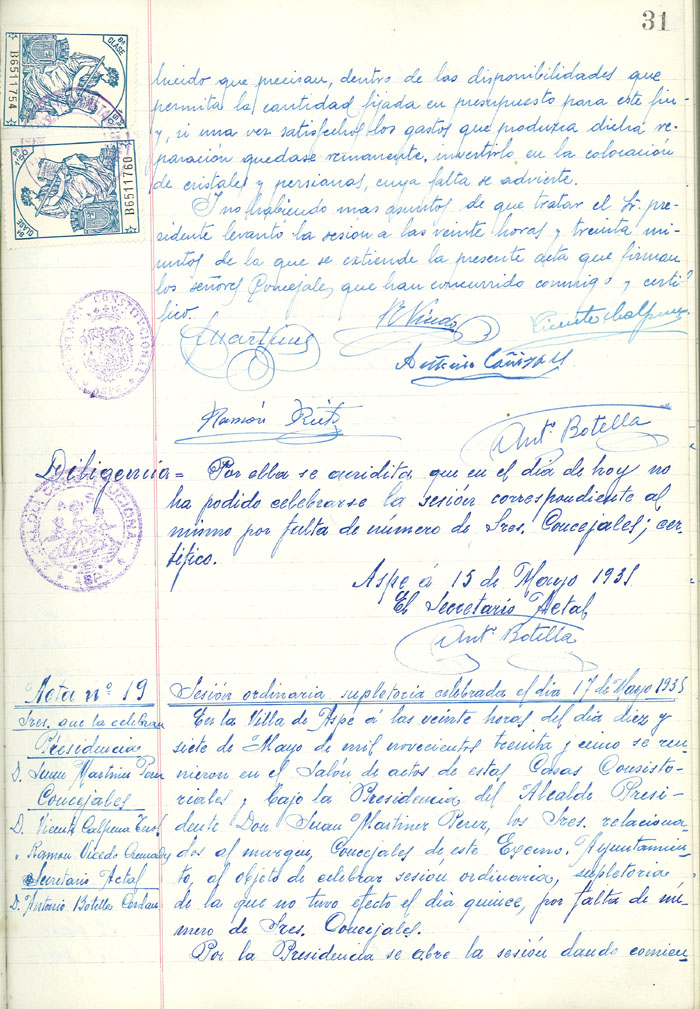 31
8ª CLASE
B6511754
8ª CLASE
PS 1'50
B6511760
lucido que precisan, dentro de las disponibilidades que
permita la cantidad fijada en presupuesto para este fin
y, si una vez satisfechos los gastos que produzca dicha re-
paración quedase remanente, invertirlo, en la colocación
de cristales y persianas, cuya falta se advierte.
Y no habiendo mas asuntos de que tratar el Sr. pre-
sidente levanto la sesion a las veinte horas y treinta mi-
nutos de la que se extiende la presente acta que firman
los señores Concejales que han concurrido conmigo y certi-
fico.
J Martinez
R Vicedo
Vicente Calpena
Antonio Cañizares
Ramón
Antº Botella
Diligencia = Por ella se acridita que en el dia de hoy no
ha podido celebrarse la sesión correspondiente al
mismo por falta de numero de Sres. Concejales; cer-
tifico.
ALCALDIA CONSTITUCIONAL
ASPE
Aspe á 15 de Mayo 1935
El Secretario Actal
Antº Botella
Acta nº 19
Sres. que la celebran
Presidencia
D. Juan Martinez Perez
Concejales
D. Vicente Calpena
" Ramon Vicedo Cremades
Secretario Actal
D. Antonio Botella Cerdan
Sesión ordinaria supletoria celebrada el dia 17 de Mayo 1935
En la Villa de Aspe á las veinte horas del dia diez y
siete de Mayo de mil novecientos treinta y cinco se reu-
nieron en el Salón de actos de estas Casas Consisto-
riales y bajo la Presidencia del Alcalde Presi-
dente Don Juan Martinez Perez, los Sres. relaciona-
dos al margen, Concejales de este Excmo. Ayuntamien-
to, al objeto de celebrar sesión ordinaria, supletoria
de la que no tuvo efecto el dia quince, por falta de nú-
mero de Sres. Concejales.
Por la Presidencia se abre la sesión dando comien